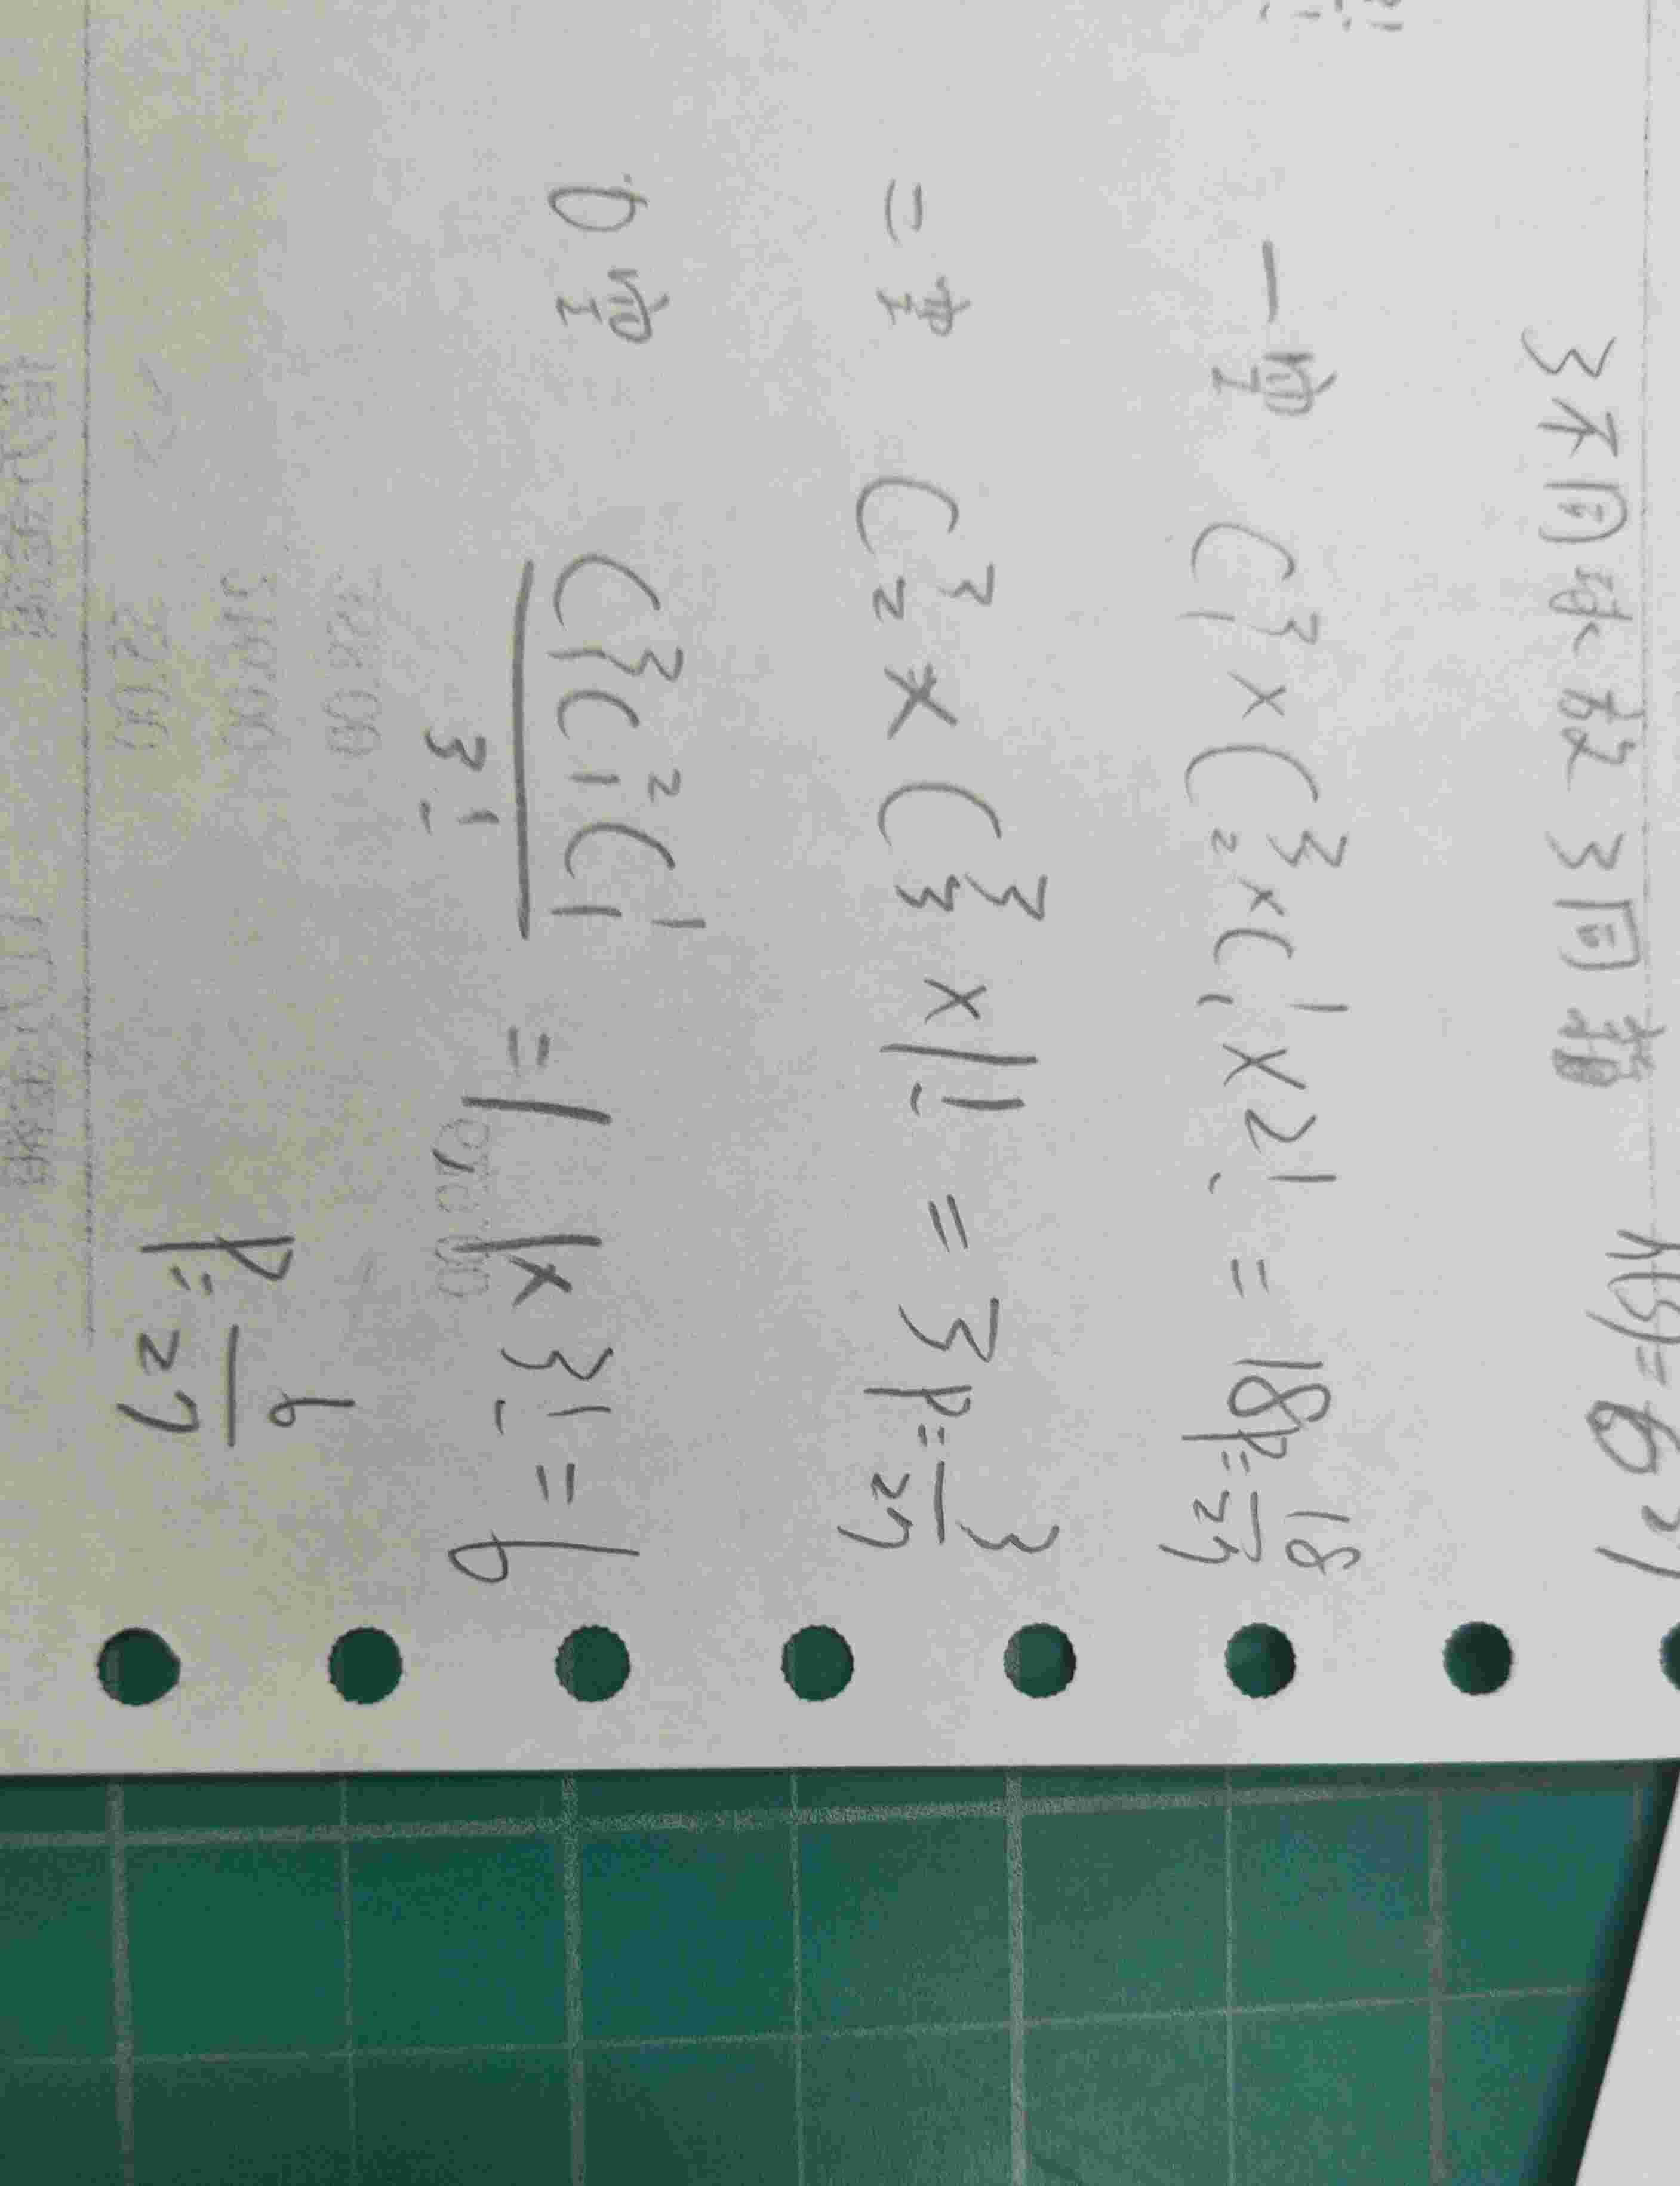 3不同球放3同箱 n(S)=6 27
一空 C³₁×C³₂×C¹₁×2! = 18 P=18/27
二空 C³₂×C³₃×1! = 3 P=3/27
0空 C³₁C²₁C¹₁/3! = 1 1×3! = 6
P=6/27